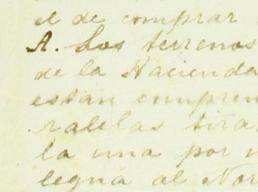 el de comprar
A. Los terrenos
de la Hacienda
están compren
ralelas tira
la una por
legua al Nor